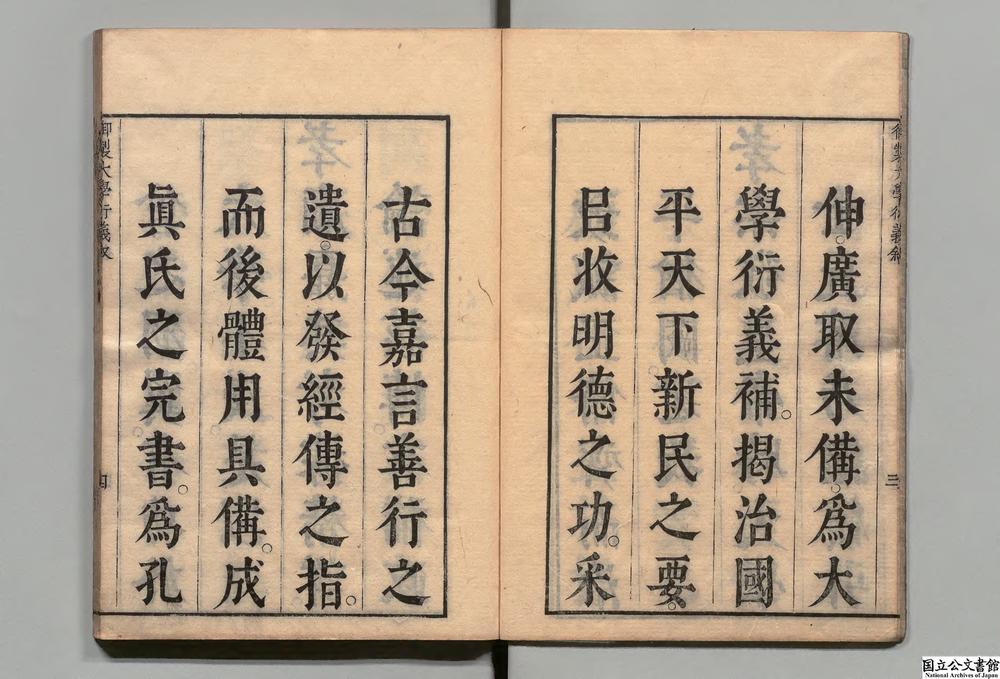 伸。廣取未備。爲大
學衍義補。揭治國
平天下。新民之要。
㠯收明德之功。采
古今嘉言善行之
遺。以發經傳之指。
而後體用具備。成
眞氏之完書。爲孔
三
四
国立公文書館
National Archives of Japan